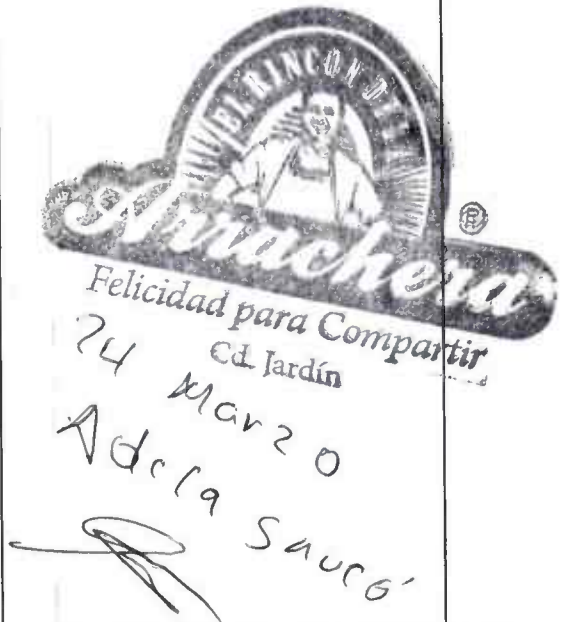 EL RINCON DE LA
Arrachera ®
Felicidad para Compartir
Cd. Jardín
24 Marzo
Adela Saucó